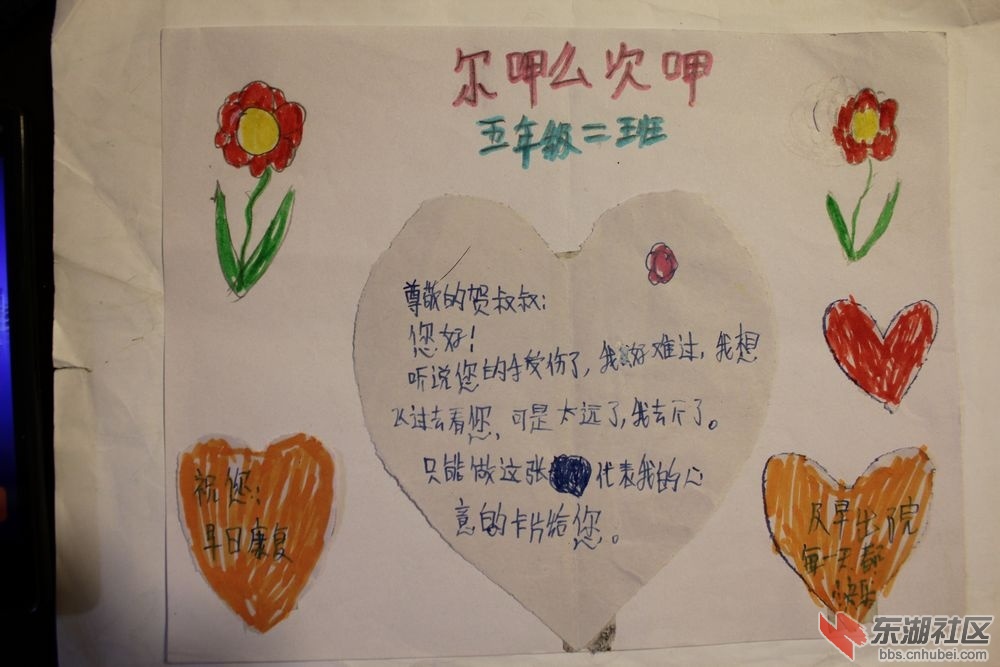 尔呷么次呷
五年级二班
尊敬的贺叔叔:
您好!
听说您的手受伤了,我好难过,我想
飞过去看您,可是太远了,我去不了。
只能做这张 代表我的心
意的卡片给您。
祝您:
早日康复
及早出院
每一天都
快乐
东湖社区
bbs.cnhubei.com